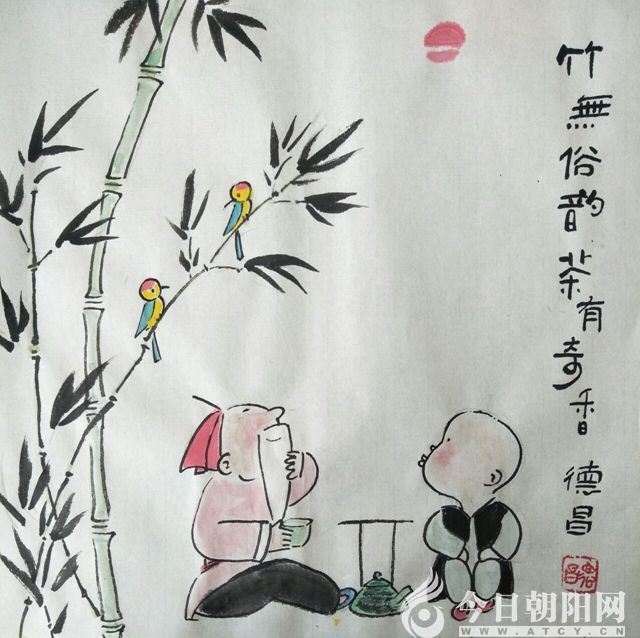 竹無俗韵茶有奇香
德昌
今日朝阳网
WWW.ATCY.CN